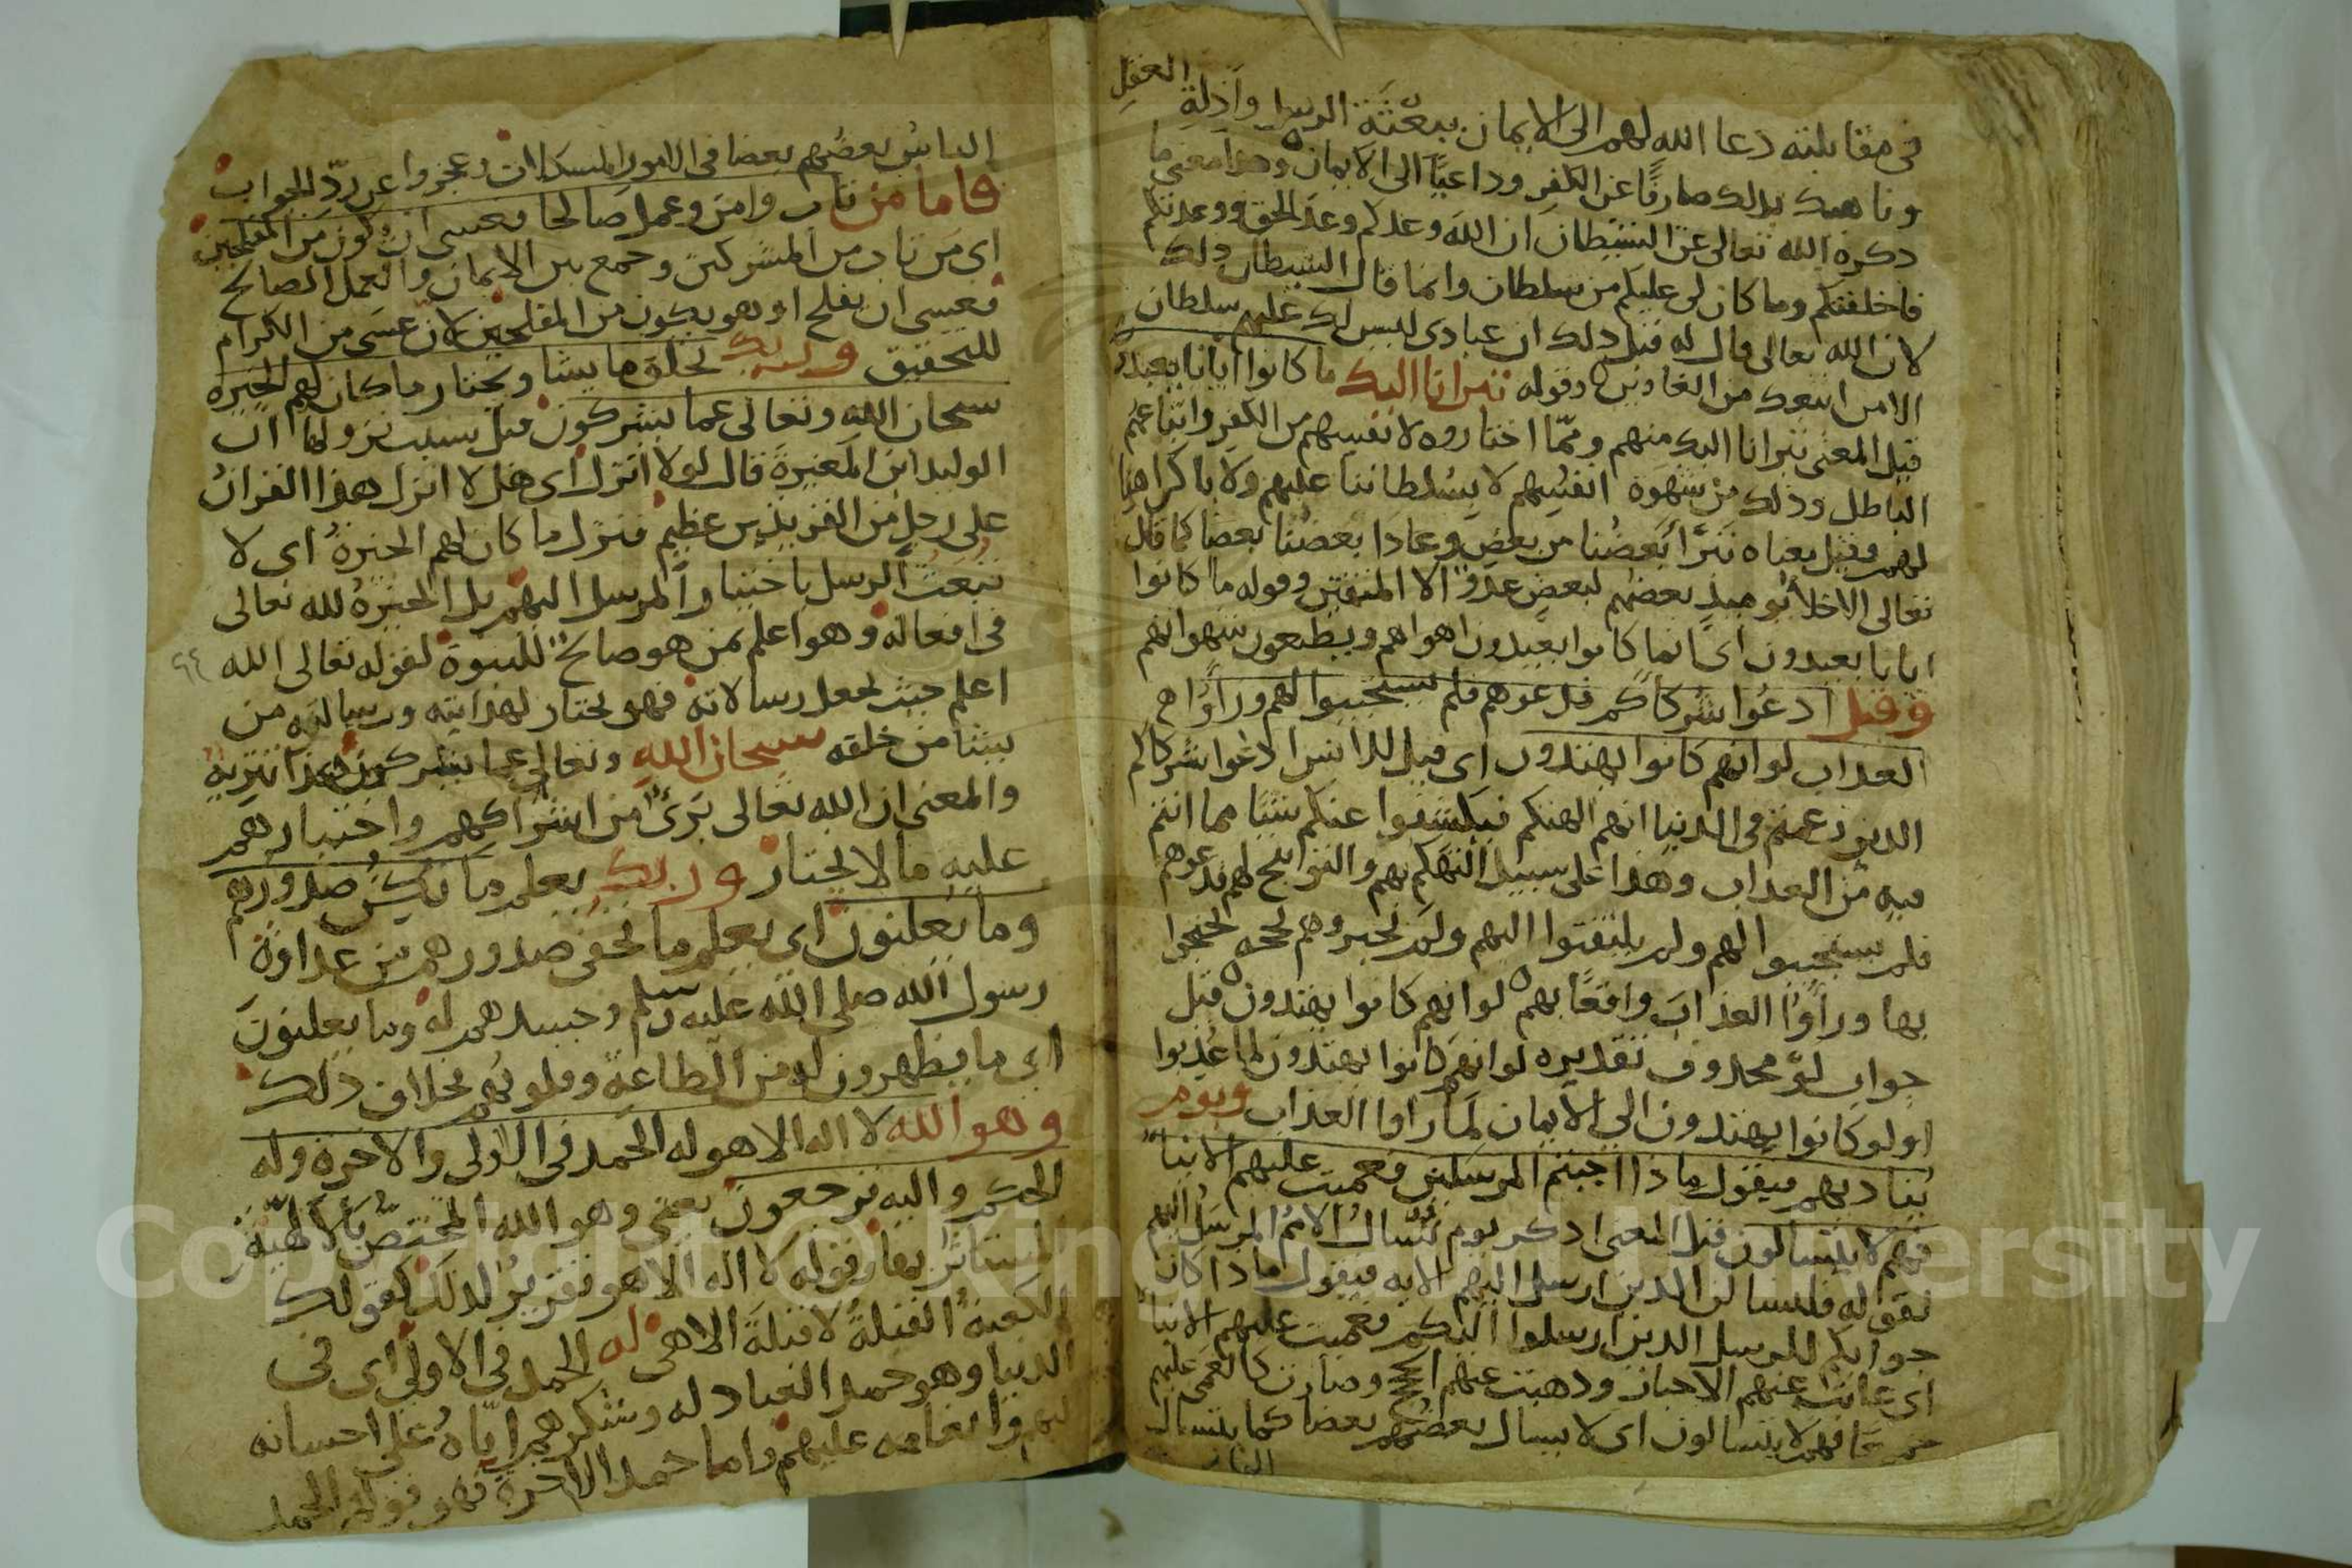 العقل
في مقابلته دعا الله لهم الى الايمان ببعثة الرسل وادلة
وناهيك بذلك صارفًا عن الكفر وداعيًا الى الايمان وهذا معنى ما
ذكره الله تعالى عن الشيطان ان الله وعدكم وعد الحق ووعدتكم
فاخلفتكم وما كان لي عليكم من سلطان وانما قال الشيطان ذلك
لان الله تعالى قال له قبل ذلك ان عبادي ليس لك عليهم سلطان
الا من اتبعك من الغاوين وقوله تبرانا اليك ما كانوا ايانا يعبدون
قيل المعنى تبرانا اليك منهم ومما اختاروه لانفسهم من الكفر واتباعهم
الباطل وذلك من شهوة انفسهم لا بسلطاننا عليهم ولا باكراهنا
لهم وقيل معناه تبرّأ بعضُنا من بعض وعادا بعضنا بعضا كما قال
تعالى الاخلأ يوميذ بعضهم لبعض عدوٌ الا المتقين وقوله ما كانوا
ايانا يعبدون اى انما كانوا يعبدون اهواهم ويطيعون شهواتهم
وقيل ادعوا شركاكم فدعوهم فلم يستجيبوا لهم وراوُا
العذاب لو انهم كانوا يهتدون اى قيل للذا بسرا ادعوا شركاكم
الذين زعمتم في الدنيا انهم الهتكم فيكشفوا عنكم شيئا مما انتم
فيه من العذاب وهذا على سبيل التهكم بهم والتوابيخ لهم فدعوهم
فلم يستجيبوا لهم ولم يلتفتوا اليهم ولم يجيروهم بحجه احتجوا
بها وراوُا العذابَ واقعًا بهم لو انهم كانوا يهتدون قيل
جواب لوْ محذوف تقديره لو انهم كانوا يهتدون لما عذبوا
او لو كانوا يهتدون الى الايمان لما راوا العذاب ويوم
يناديهم فيقول ماذا اجبتم المرسلين فعميت عليهم الانبا
فهم لا يتسالون قيل المعنى اذكر يوم تُسال الامم المرسَل اليهم
لقوله فلنسالن الذين ارسل اليهم الايه فيقول ماذا كان
جوابكم للرسل الذين ارسلوا اليكم فعميت عليهم الانبا
اى غابت عنهم الاخبار وذهبت عنهم الحجج وصارت كالعمى عليهم
جميعًا فهم لا يتسالون اى لا يسال بعضهم بعضا كما يتسال
الناس
الناسُ بعضهم بعضا في الامور المشكلات وعجزوا عن ردّ الجواب
فاما من تاب وامن وعمل صالحا فعسى ان يكون من المفلحين
اى من تاب من المشركين وجمع بين الايمان والعمل الصالح
فعسى ان يفلح او هو يكون من المفلحين لان عسى من الكرام
للتحقيق وربك يخلق ما يشا ويختار ما كان لهم الخيرة
سبحان الله وتعالى عما يشركون قيل سبب نزولها ان
الوليد ابن المغيرة قال لولا انزل اى هل لا انزل هذا القران
على رجل من القريتين عظيم فنزل ما كان لهم الخيرةُ اى لا
تبعث الرسل باختيار المرسل اليهم بل الخيرةُ لله تعالى
في افعاله وهو اعلم بمن هو صالحٌ للنبوة لقوله تعالى الله
٩٤
اعلم حيث يجعل رسالاته فهو يختار لهدايته ورسالته من
يشا من خلقه سبحان الله وتعالى عما يشركون هذا تنزيهٌ
والمعنى ان الله تعالى برئٌ من اشراكهم واختيارهم
عليه ما لا يختار وربك يعلم ما تكن صدورهم
وما يعلنون اى يعلم ما تخفى صدورهم من عداوة
رسول الله صلى الله عليه وسلم وحسدهم له وما يعلنون
اى ما يظهرون له من الطاعة وقلوبهم بخلاف ذلك
وهو الله لا اله الا هو له الحمد في الاولى والاخرة وله
الحكم واليه ترجعون يعني وهو الله المختصّ بالالهيّة
المستاثر بها وقوله لا اله الا هو تقريرٌ لذلك كقولك
الكعبة القبلة لا قبلة الا هي له الحمد في الاولى اى في
الدنيا وهو حمد العباد له وشكرهم اياه على احسانه
اليهم وانعامه عليهم واما حمد الاخرة فهو قولهُ الحمد
Copyright © King Saud University